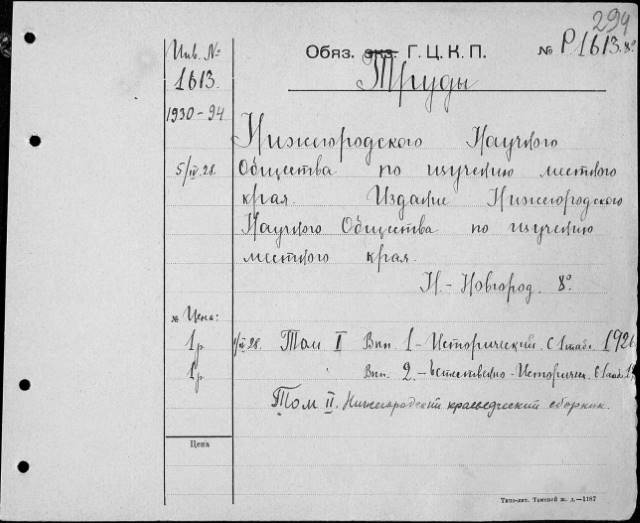 299
Инв. №
1613.
1930-94
5/IV.28.
Обяз. экз. Г. Ц. К. П.
№ Р1613. 8°
Труды
Нижегородского Научного
Общества по изучению местного
края. Издание Нижегородского
Научного Общества по изучению
местного края.
Н.-Новгород. 8°.
№ Цена:
1р Том I Вып. 1 - Исторический. С 1 табл.
1р Вып. 2. - Естественно-Историческ. С 1 табл.
Том II. Нижегородский краеведческий сборник.
Цена
Типо-лит. Танской ж. д.—1187